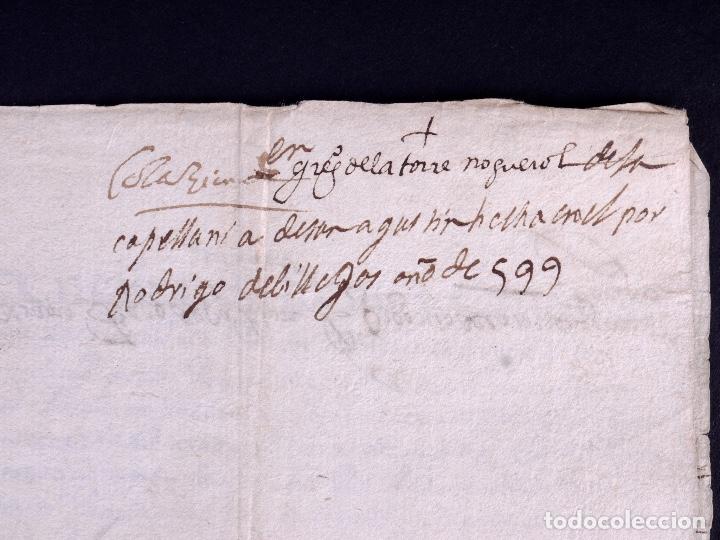 Colazion en greº de la torre noguerol de su
capellania de san agustin hecha en el por
Rodrigo de billegas año de 599
todocoleccion